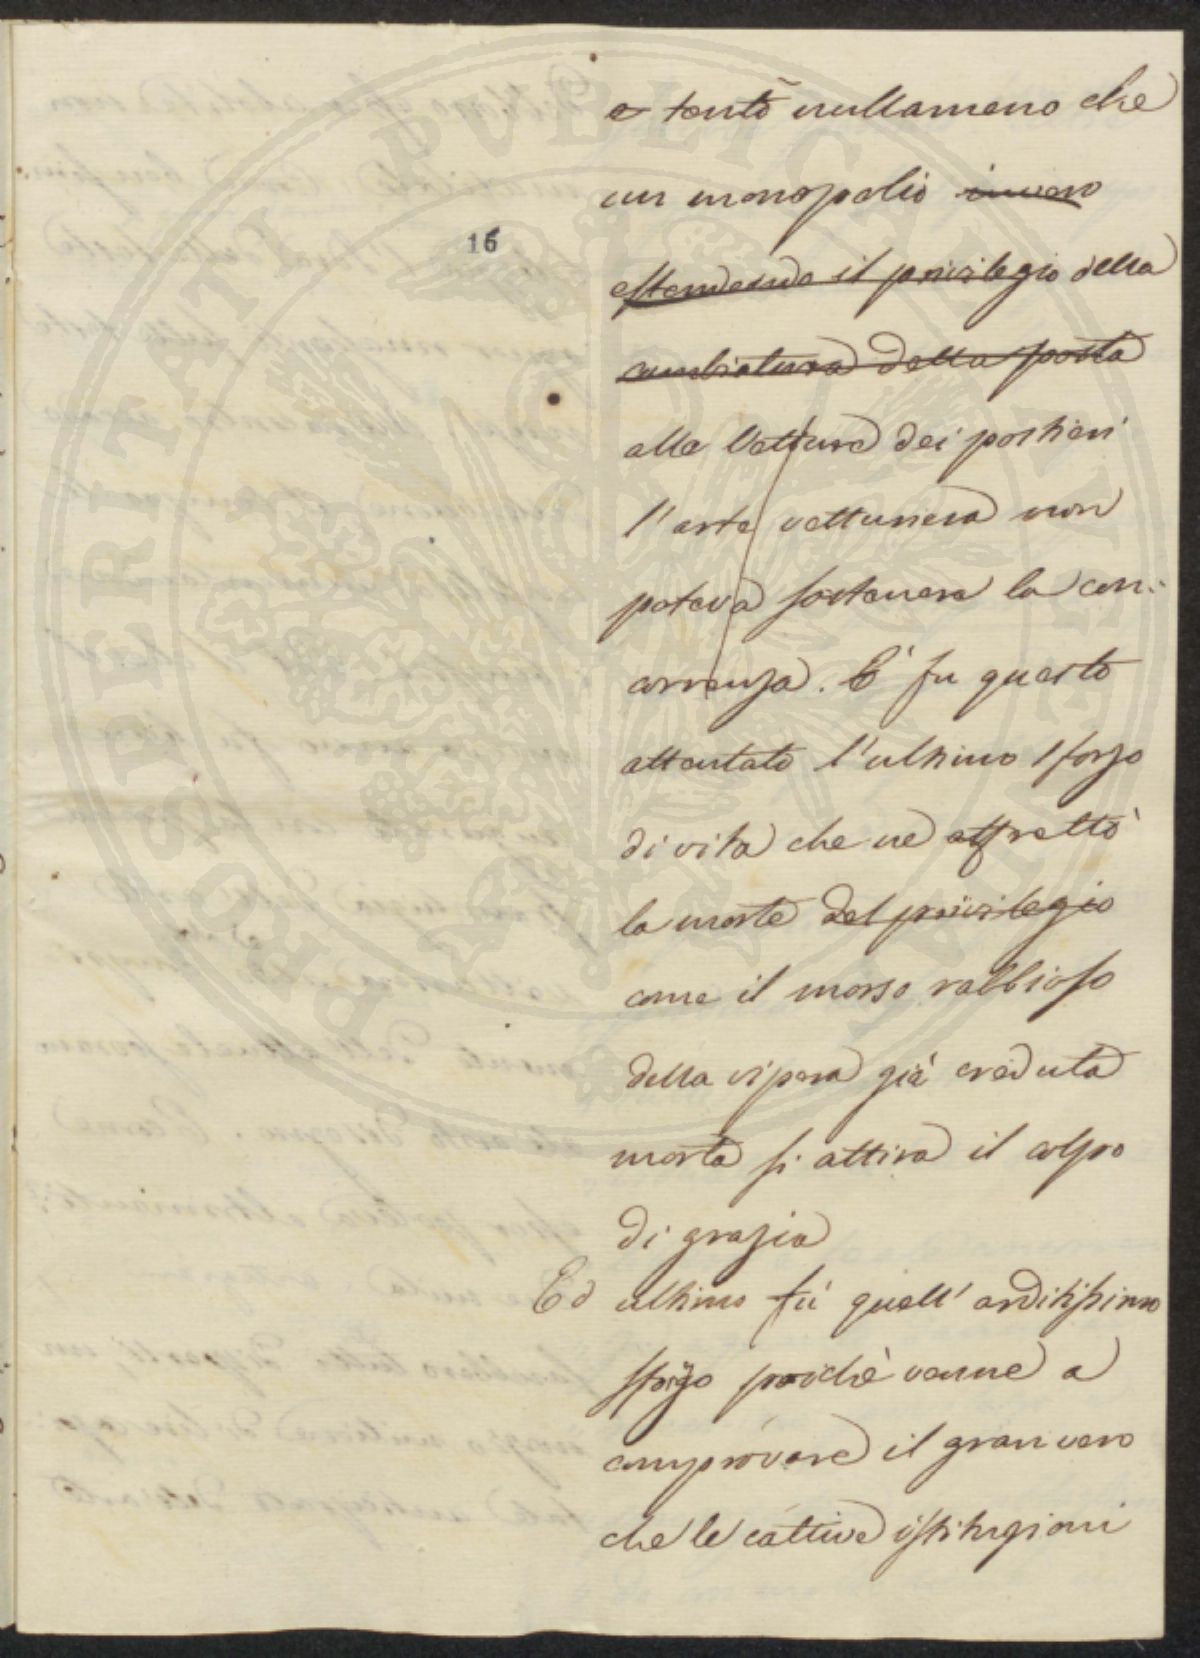 e tentò nullameno che
un monopolio invero
16
estendendo il privilegio della
cambiatura della posta
alle Vetture dei postieri
l'arte vetturiera non
poteva sostenere la con-
correnza. E' fu questo
attentato l'ultimo sforzo
di vita che ne affrettò
la morte del privilegio
come il morso rabbioso
della vipera già creduta
morta si attira il colpo
di grazia
Ed ultimo fù quell' arditissimo
sforzo poichè venne a
comprovare il gran vero
che le cattive istituzioni
PROSPERITATI PUBLICAE